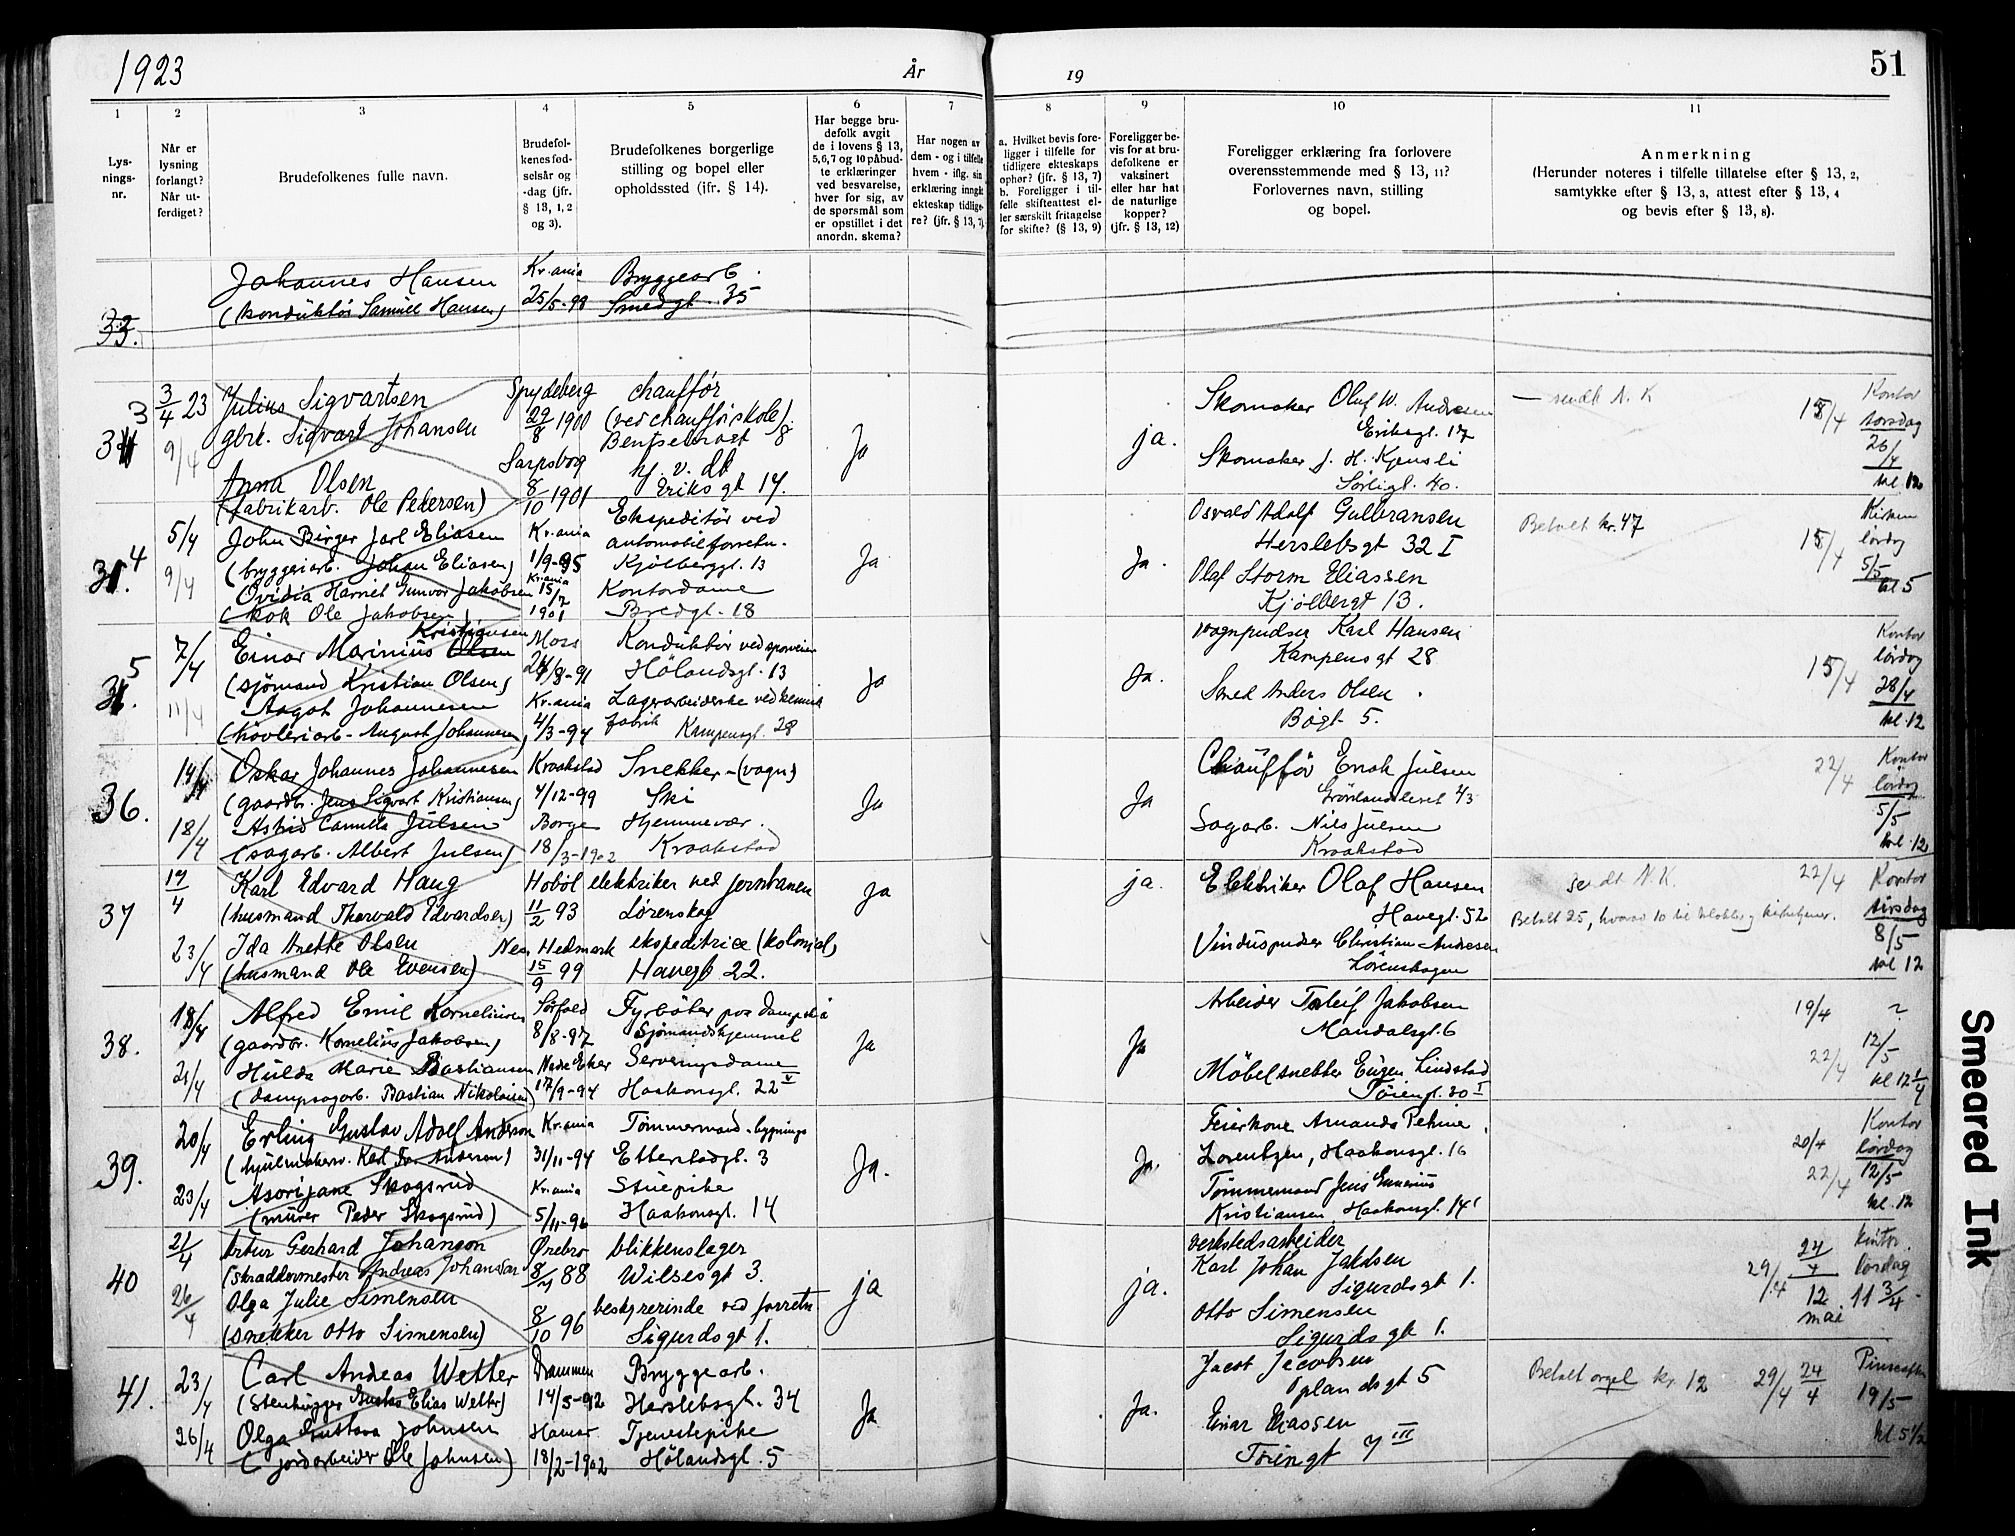 1923
År
19
51
1
2
3
4
5
6
7
8
9
10
11
Lys-
nings-
nr.
Når er
lysning
forlangt?
Når ut-
ferdiget?
Brudefolkenes fulle navn.
Brudefol-
kenes fød-
selsår og
-dag (jfr.
§ 13, 1, 2
og 3).
Brudefolkenes borgerlige
stilling og bopel eller
opholdssted (jfr. § 14).
Har begge bru-
defolk avgit
de i lovens § 13,
5, 6, 7 og 10 påbud-
te erklæringer
ved besvarelse,
hver for sig, av
de spørsmål som
er opstillet i det
anordn. skema?
Har nogen av
dem - og i tilfelle
hvem - iflg. sin
erklæring inngått
ekteskap tidlige-
re? (jfr. § 13, 7).
a. Hvilket bevis fore-
ligger i tilfelle for
tidligere ekteskaps
ophør? (jfr. § 13, 7)
b. Foreligger i til-
felle skifteattest el-
ler særskilt fritagelse
for skifte? (§ 13, 9)
Foreligger be-
vis for at bru-
defolkene er
vaksinert
eller har hat
de naturlige
kopper?
(jfr. § 13, 12)
Foreligger erklæring fra forlovere
overensstemmende med § 13, 11?
Forlovernes navn, stilling
og bopel.
Anmerkning
(Herunder noteres i tilfelle tillatelse efter § 13, 2,
samtykke efter § 13, 3, attest efter § 13, 4
og bevis efter § 13, 8).
33.
Johannes Hansen
(konduktør Samuel Hansen)
Kr.ania
25/5-99
Bryggearb.
Smedgt. 35
3/4 23
9/4
Julius Sigvartsen
gbrk. Sigvart Johansen
Anna Olsen
(fabrikarb. Ole Pedersen)
Spydeberg
29/8 1900
Sarpsborg
8/10 1901
chauffør
(ved chaufførskole)
8
Eriksgt 17.
Ja
ja.
Skomaker Oluf W. Andresen
Eriksgt. 17
Skomaker J. H. Kjensli
Sørligt. 40.
sendt N. K
15/4
Kontor
torsdag
26/4
kl. 12
4
5/4
9/4
John Birger Jarl Eliasen
(bryggeriarb. Johan Eliasen)
Ovidia Harriet Gunvor Jakobsen
(kok Ole Jakobsen)
Kr.ania
1/9-95
Kr.ania
15/7
1901
Ekspeditør ved
automobilforretn.
Kjølberggt. 13
Kontordame
Bredgt. 18
Ja
Ja.
Osvald Adolf Gulbransen
Herslebsgt 32 I
Olaf Storm Eliassen
Kjølbergt 13.
Betalt kr. 47
15/4
Kirken
lørdag
5/5
kl 5
5
7/4
11/4
Einar Marinius Olsen Kristiansen
(sjømand Kristian Olsen)
Aagot Johannesen
(høvleriarb. August Johannesen)
Moss
24/8-91
Kr.ania
4/3-94
Konduktør ved sporveien
Hølandsgt. 13
Lagerarbeiderske ved kemisk
fabrik Kampensgt. 28
Ja
Ja.
Vognpudser Karl Hansen
Kampensgt 28
Smed Anders Olsen
Bøgt. 5.
15/4
Kontor
lørdag
28/4
kl. 12
36.
14/4
18/4
Oskar Johannes Johannesen
(gaardbr. Jens Sigvart Kristiansen)
Astrid Camilla Julsen
(sagarb. Albert Julsen)
Kraakstad
4/12-99
Borge
18/3-1902
Snekker-(vogn)
Ski
Hjemmevær.
Kraakstad
Ja
Ja
Chauffør Enok Julsen
Grønlandsleret 43
Sagarb. Nils Julsen
Kraakstad
22/4
Kontor
lørdag
5/5
kl. 12
37
17/4
23/4
Karl Edvard Haug
(husmand Thorvald Edvardsen)
Ida Anette Olsen
(husmand Ole Evensen)
Hobøl
11/2 93
Nes, Hedmark
15/9 99
elektriker ved jernbanen
Lørenskog
ekspeditrice (kolonial)
Havegt 22.
ja
ja.
Elektriker Olaf Hansen
Havegt. 52
Vinduspudser Christian Andresen
Lørenskogen
sendt N.K.
Betalt 25, hvorav 10 til klokker og kirketjener.
22/4
Kontor
tirsdag
8/5
kl 12
38.
18/4
21/4
Alfred Emil Korneliusen
(gaardbr. Kornelius Jakobsen)
Hulda Marie Bastiansen
(dampsagarb. Bastian Nikolaisen)
Sørfold
8/8-97
Nedre Eker
17/9-94
Fyrbøter paa dampskib
Sjømandshjemmet
Serveringsdame
Haakonsgt. 22 V
Ja
Ja
Arbeider Toleif Jakobsen
Mandalsgt. 6
Møbelsnekker Eugen Lindstad
Tøiengt. 30 I
19/4
22/4
?
12/5
kl 12 1/4
39.
20/4
23/4
Erling Gustav Adolf Anderson
Asorijane Skogsrud
(murer Peder Skogsrud)
Kr.ania
31/11-94
Kr.ania
5/11-96
Tømmermand - bygnings
Etterstadgt. 3
Stuepike
Haakonsgt. 14
Ja.
Ja.
Feierkone Amanda Petrine
Lorentzen, Haakonsgt. 16
Tømmermand Jens
Kristiansen Haakonsgt. 14
20/4
22/4
Kontor
lørdag
12/5
kl. 12
40
21/4
26/4
Artur Gerhard Johanson
(skreddermester Andreas Johansson
Olga Julie Simensen
(snekker Otto Simensen)
Ørebro
8/4 88
8/10 96
blikkenslager
Wilsesgt 3.
bestyrerinde ved forretn
Sigurdsgt 1.
ja
ja.
verkstedsarbeider
Karl Johan
Sigurdsgt 1.
Otto Simensen
Sigurdsgt 1.
29/4
24/4
12
mai
kontor.
lørdag
11 3/4
41.
23/4
26/4
Carl Andreas Wetter
(Stenhugger Elias Wetter)
Olga Gustava Johnsen
(jordarbeider Ole Johnsen)
Drammen
14/5-92
Hamar
18/2-1902
Bryggearb.
Herslebsgt. 34
Tjenestepike
Hølandsgt. 5
Ja
Ja.
Jacob Jacobsen
Oplandsgt 5
Einar Eliassen
Tøiengt 7 III
Betalt orgel kr. 12
29/4
24/4
Pinseaften
19/5
kl 5 1/2
Smeared Ink